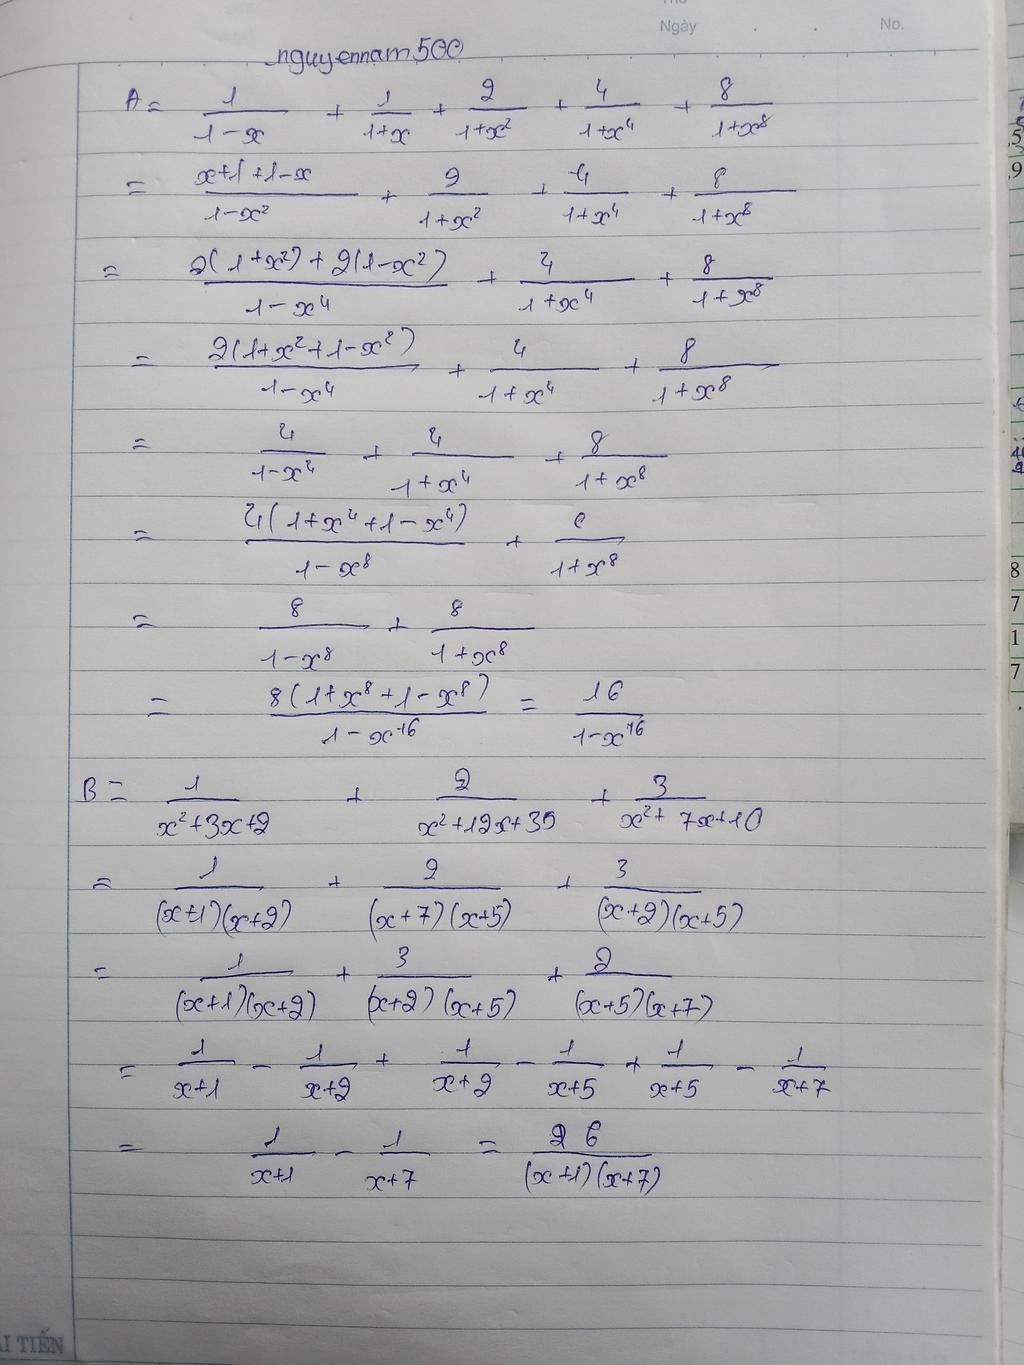 Thứ
Ngày . . No.
nguyennam500
A = 1/(1-x) + 1/(1+x) + 2/(1+x²) + 4/(1+x⁴) + 8/(1+x⁸)
= (x+1+1-x)/(1-x²) + 2/(1+x²) + 4/(1+x⁴) + 8/(1+x⁸)
= (2(1+x²)+2(1-x²))/(1-x⁴) + 4/(1+x⁴) + 8/(1+x⁸)
= (2(1+x²+1-x²))/(1-x⁴) + 4/(1+x⁴) + 8/(1+x⁸)
= 4/(1-x⁴) + 4/(1+x⁴) + 8/(1+x⁸)
= (4(1+x⁴+1-x⁴))/(1-x⁸) + 8/(1+x⁸)
= 8/(1-x⁸) + 8/(1+x⁸)
= (8(1+x⁸+1-x⁸))/(1-x¹⁶) = 16/(1-x¹⁶)
B = 1/(x²+3x+2) + 2/(x²+12x+35) + 3/(x²+7x+10)
= 1/((x+1)(x+2)) + 2/((x+7)(x+5)) + 3/((x+2)(x+5))
= 1/((x+1)(x+2)) + 3/((x+2)(x+5)) + 2/((x+5)(x+7))
= 1/(x+1) - 1/(x+2) + 1/(x+2) - 1/(x+5) + 1/(x+5) - 1/(x+7)
= 1/(x+1) - 1/(x+7) = 26/((x+1)(x+7))
8
7
1
7
TIẾN